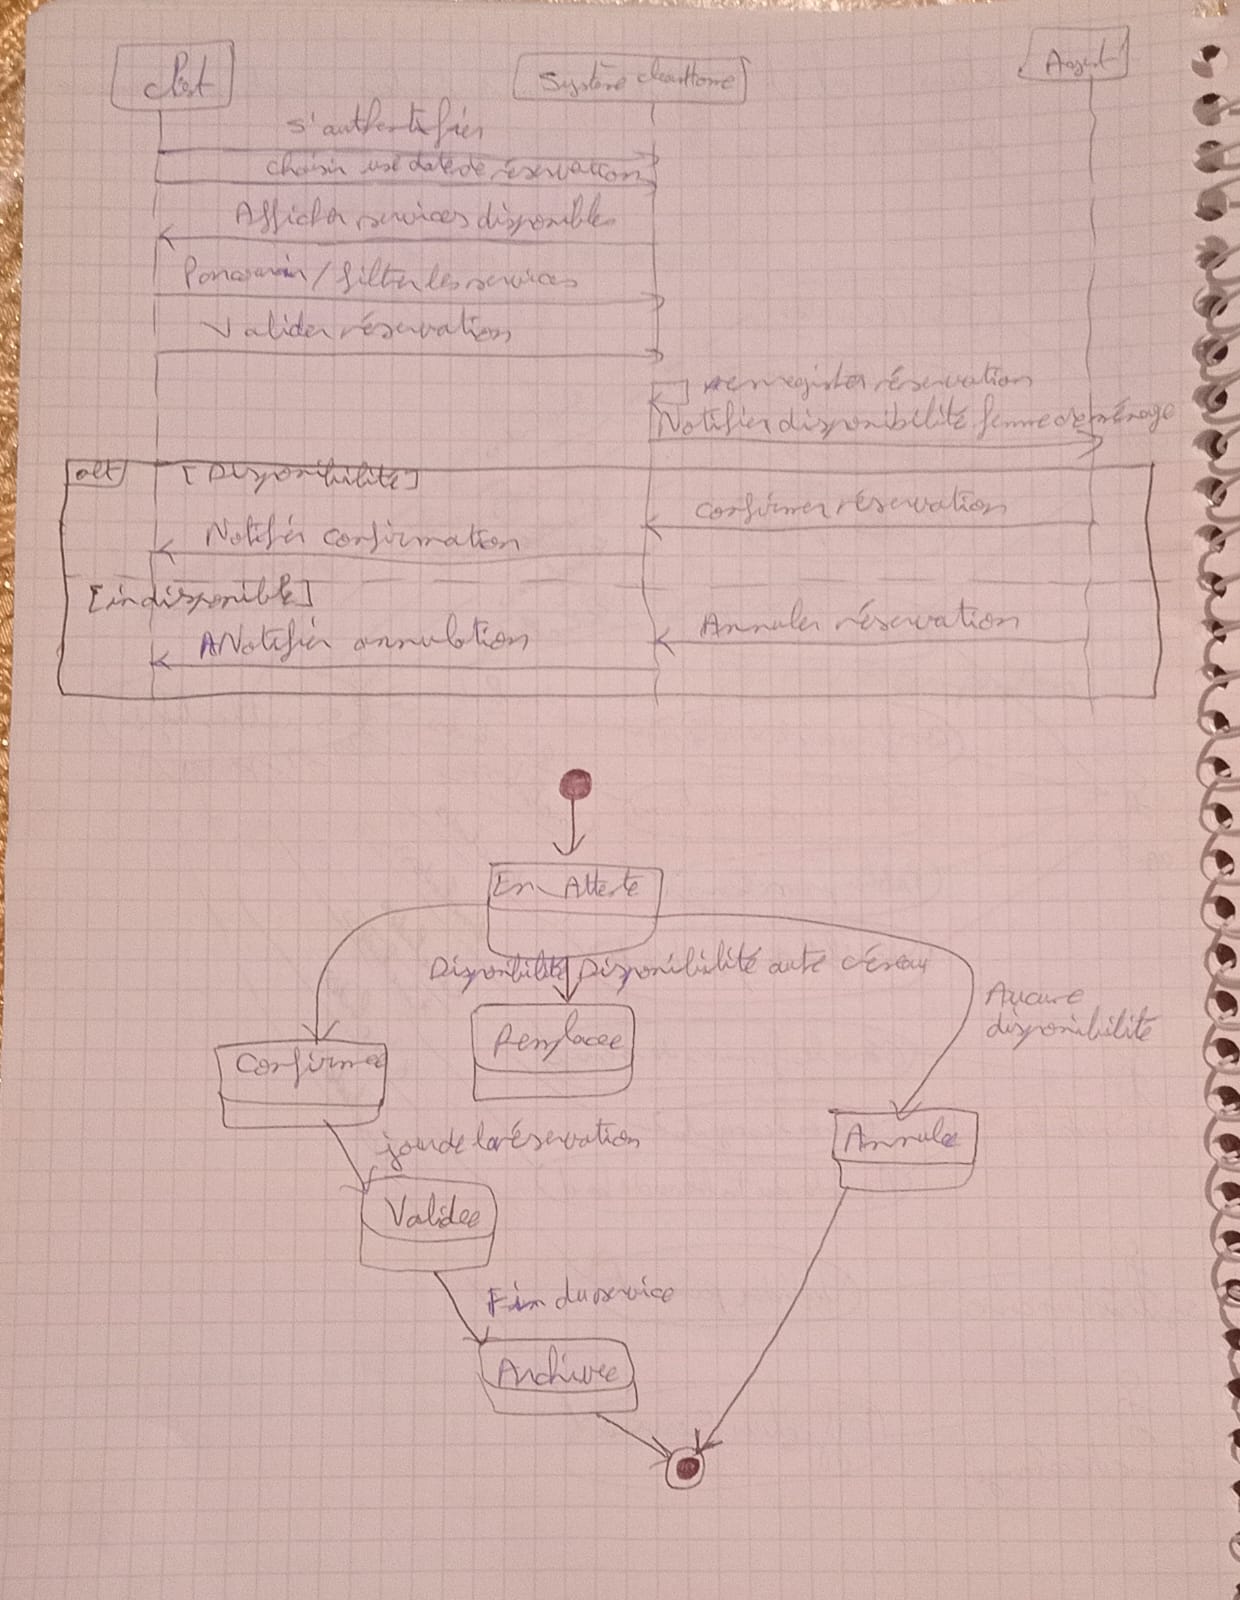 Client
Système cleanHome
Agent
s'authentifier
choisir une date de réservation
Afficher services disponibles
Parcourir / filter les services
Valider réservation
enregister réservation
Notifier disponibilité femme de ménage
alt
[Disponibilité]
Confirmer réservation
Notifier confirmation
[indisponible]
Annuler réservation
Notifier annulation
En Attente
Disponibilité
Disponibilité autre créneau
Aucune
disponibilité
Remplacée
Confirmée
Annulée
jour de la réservation
Validée
Fin du service
Archivée